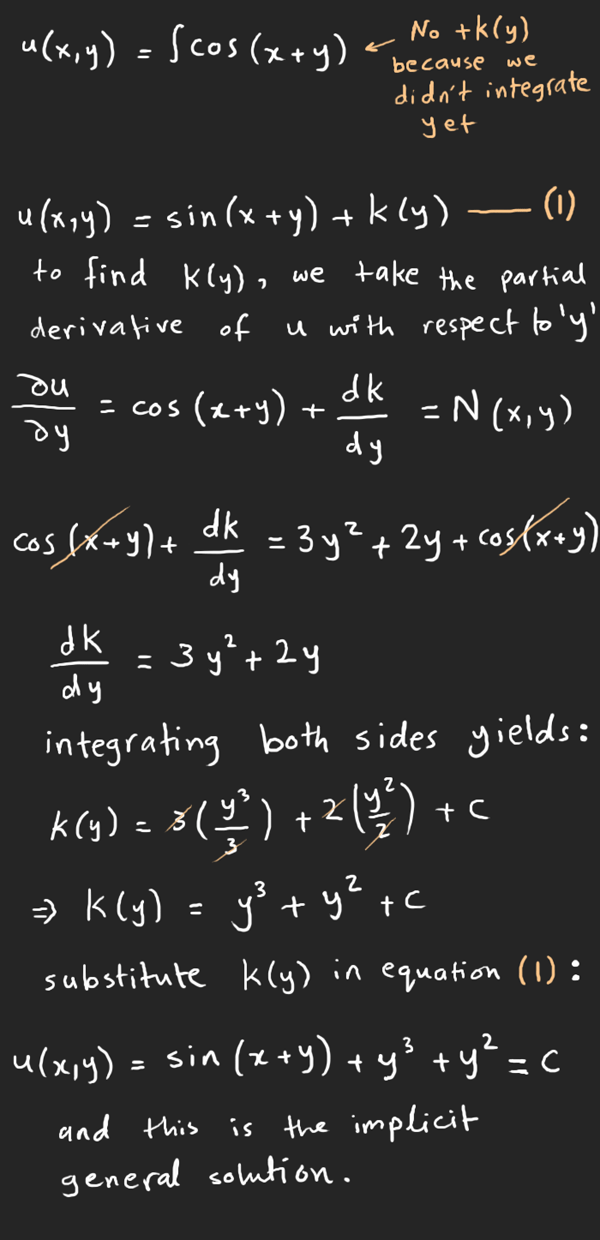 u(x,y) = ∫cos(x+y) ← No +k(y)
because we
didn't integrate
yet
u(x,y) = sin(x+y) + k(y) — (1)
to find k(y), we take the partial
derivative of u with respect to 'y'
∂u/∂y = cos(x+y) + dk/dy = N(x,y)
cos(x+y) + dk/dy = 3y² + 2y + cos(x+y)
dk/dy = 3y² + 2y
integrating both sides yields:
k(y) = 3(y³/3) + 2(y²/2) + c
⇒ k(y) = y³ + y² + c
substitute k(y) in equation (1):
u(x,y) = sin(x+y) + y³ + y² = c
and this is the implicit
general solution.